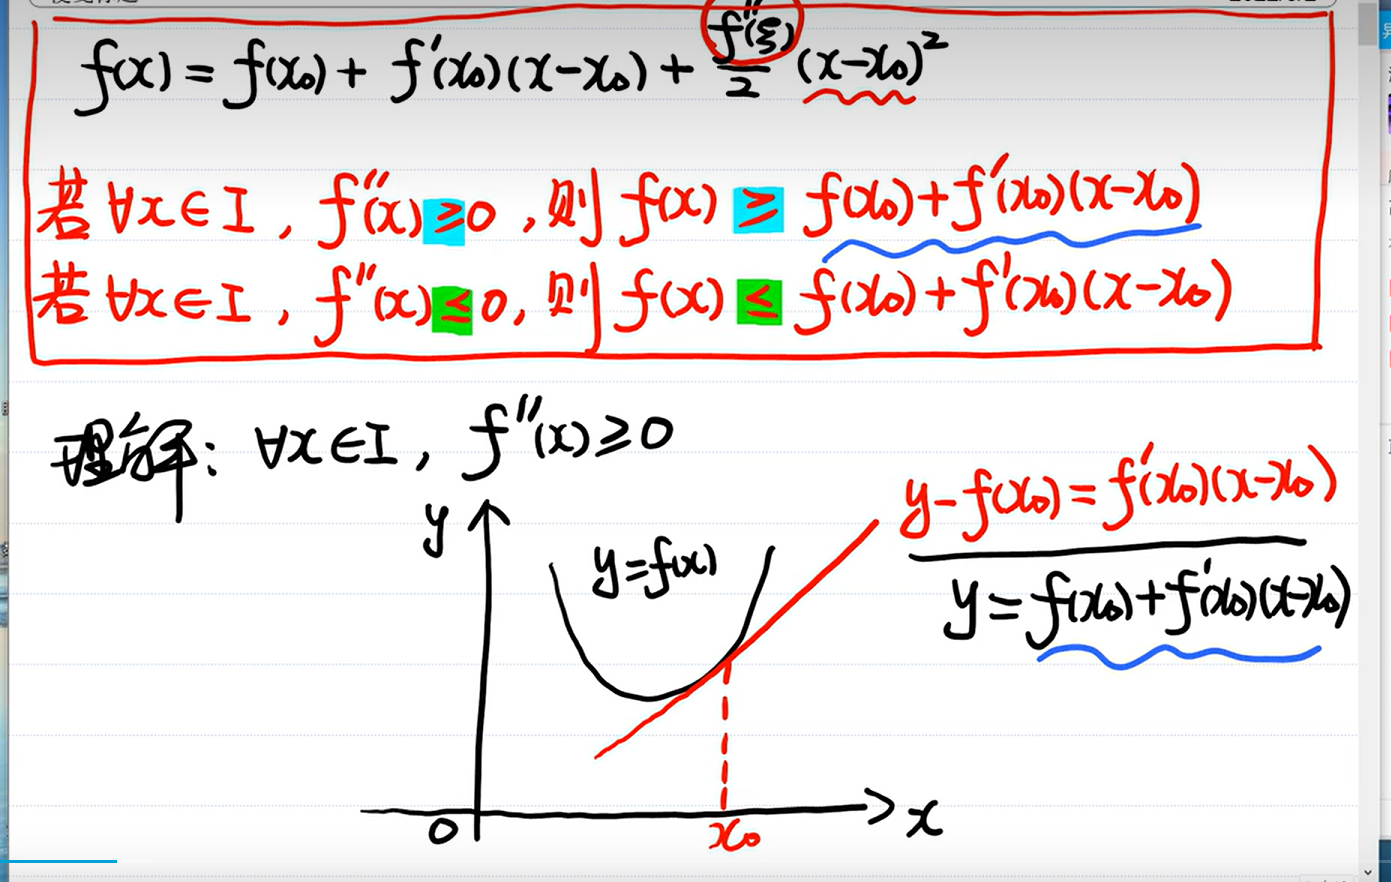 f(x) = f(x₀) + f'(x₀)(x-x₀) + f''(ξ)/2 (x-x₀)²
若 ∀x∈I, f''(x)≥0, 则 f(x) ≥ f(x₀)+f'(x₀)(x-x₀)
若 ∀x∈I, f''(x)≤0, 则 f(x) ≤ f(x₀)+f'(x₀)(x-x₀)
理解: ∀x∈I, f''(x)≥0
y-f(x₀)=f'(x₀)(x-x₀)
y
y=f(x)
y=f(x₀)+f'(x₀)(x-x₀)
0
x₀
x